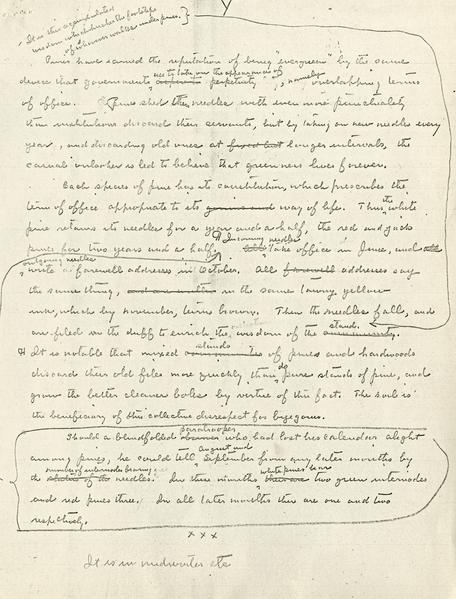 It is this accumulated
wisdom which hushes the footsteps
of whoever walks under pines.
Pines have earned the reputation of being "evergreen" by the same
device that governments use to take on the appearances of perpetuity, namely overlapping terms
of office. Pines shed their needles with even more punctuality
than institutions discard their servants, but by taking on new needles every
year, and discarding old ones at longer intervals, the
casual onlooker is led to believe that greenness lives forever.
Each species of pine has its constitution, which prescribes the
term of office appropriate to its way of life. Thus the white
pine retains its needles for a year and a half, the red and jack
pines for two years and a half. Incoming needles take office in June, and
outgoing needles
write a farewell addresses in October. All farewell addresses say
the same thing, in the same tawny yellow
ink, which by November, turns brown. Then the needles fall, and
are filed in the duff to enrich the wisdom of the stand.
It is notable that mixed stands of pines and hardwoods
discard their old files more quickly than do pure stands of pine, and
grow the better cleaner boles by virtue of this fact. The soil is
the beneficiary of the collective disrespect for bygones.
Should a blindfolded paratrooper who had lost his calendar alight
among pines, he could tell August and September from any later months by
the number of internodes bearing needles. In these months white pines bear two green internodes
and red pines three. In all later months there are one and two
respectively.
x x x
It is in midwinter etc